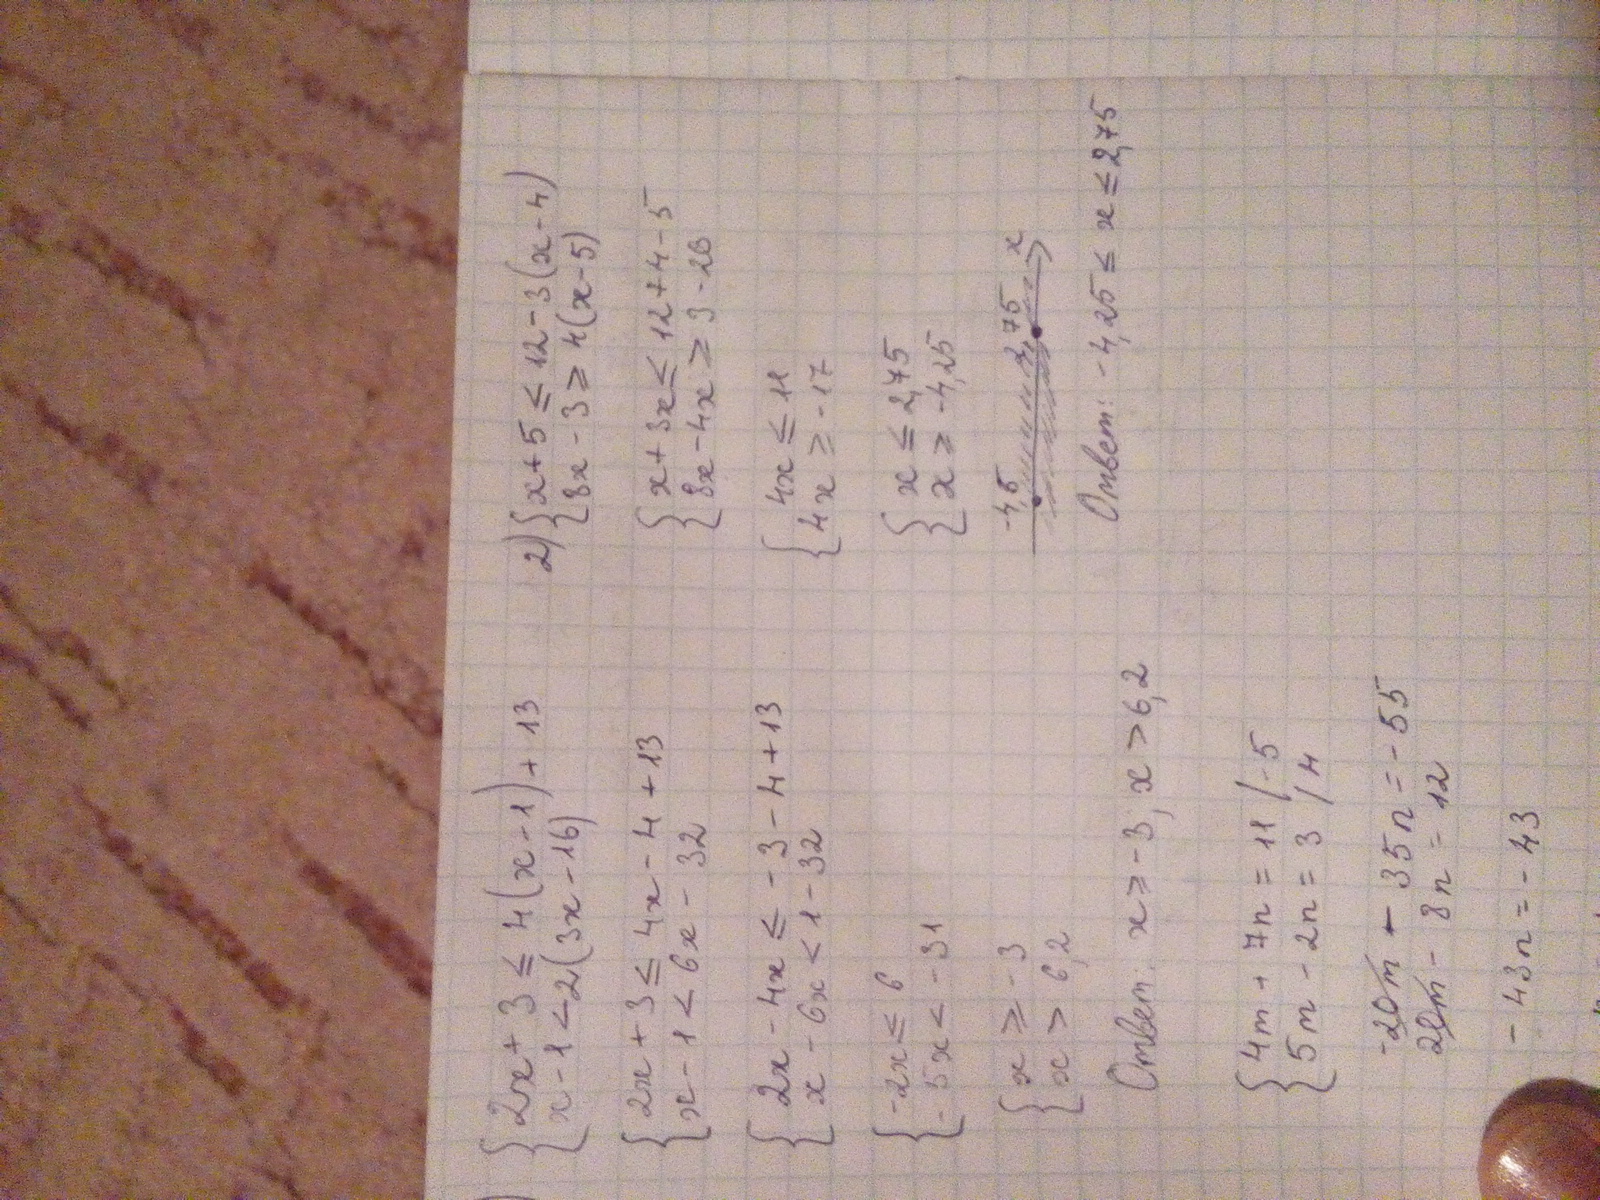 {2x + 3 ≤ 4(x - 1) + 13
x - 1 < 2(3x - 16)
{2x + 3 ≤ 4x - 4 + 13
x - 1 < 6x - 32
{2x - 4x ≤ - 3 - 4 + 13
x - 6x < 1 - 32
{-2x ≤ 6
- 5x < - 31
{x ≥ - 3
x > 6,2
Ответ: x ≥ - 3, x > 6,2
{4m + 7n = 11 /-5
5m - 2n = 3 /4
-20m - 35n = - 55
20m - 8n = 12
- 43n = - 43
2) {x + 5 ≤ 12 - 3(x - 4)
8x - 3 ≥ 4(x - 5)
{x + 3x ≤ 12 + 4 - 5
8x - 4x ≥ 3 - 20
{4x ≤ 11
4x ≥ - 17
{x ≤ 2,75
x ≥ - 4,25
-4,5 2,75 x
Ответ: - 4,25 ≤ x ≤ 2,75